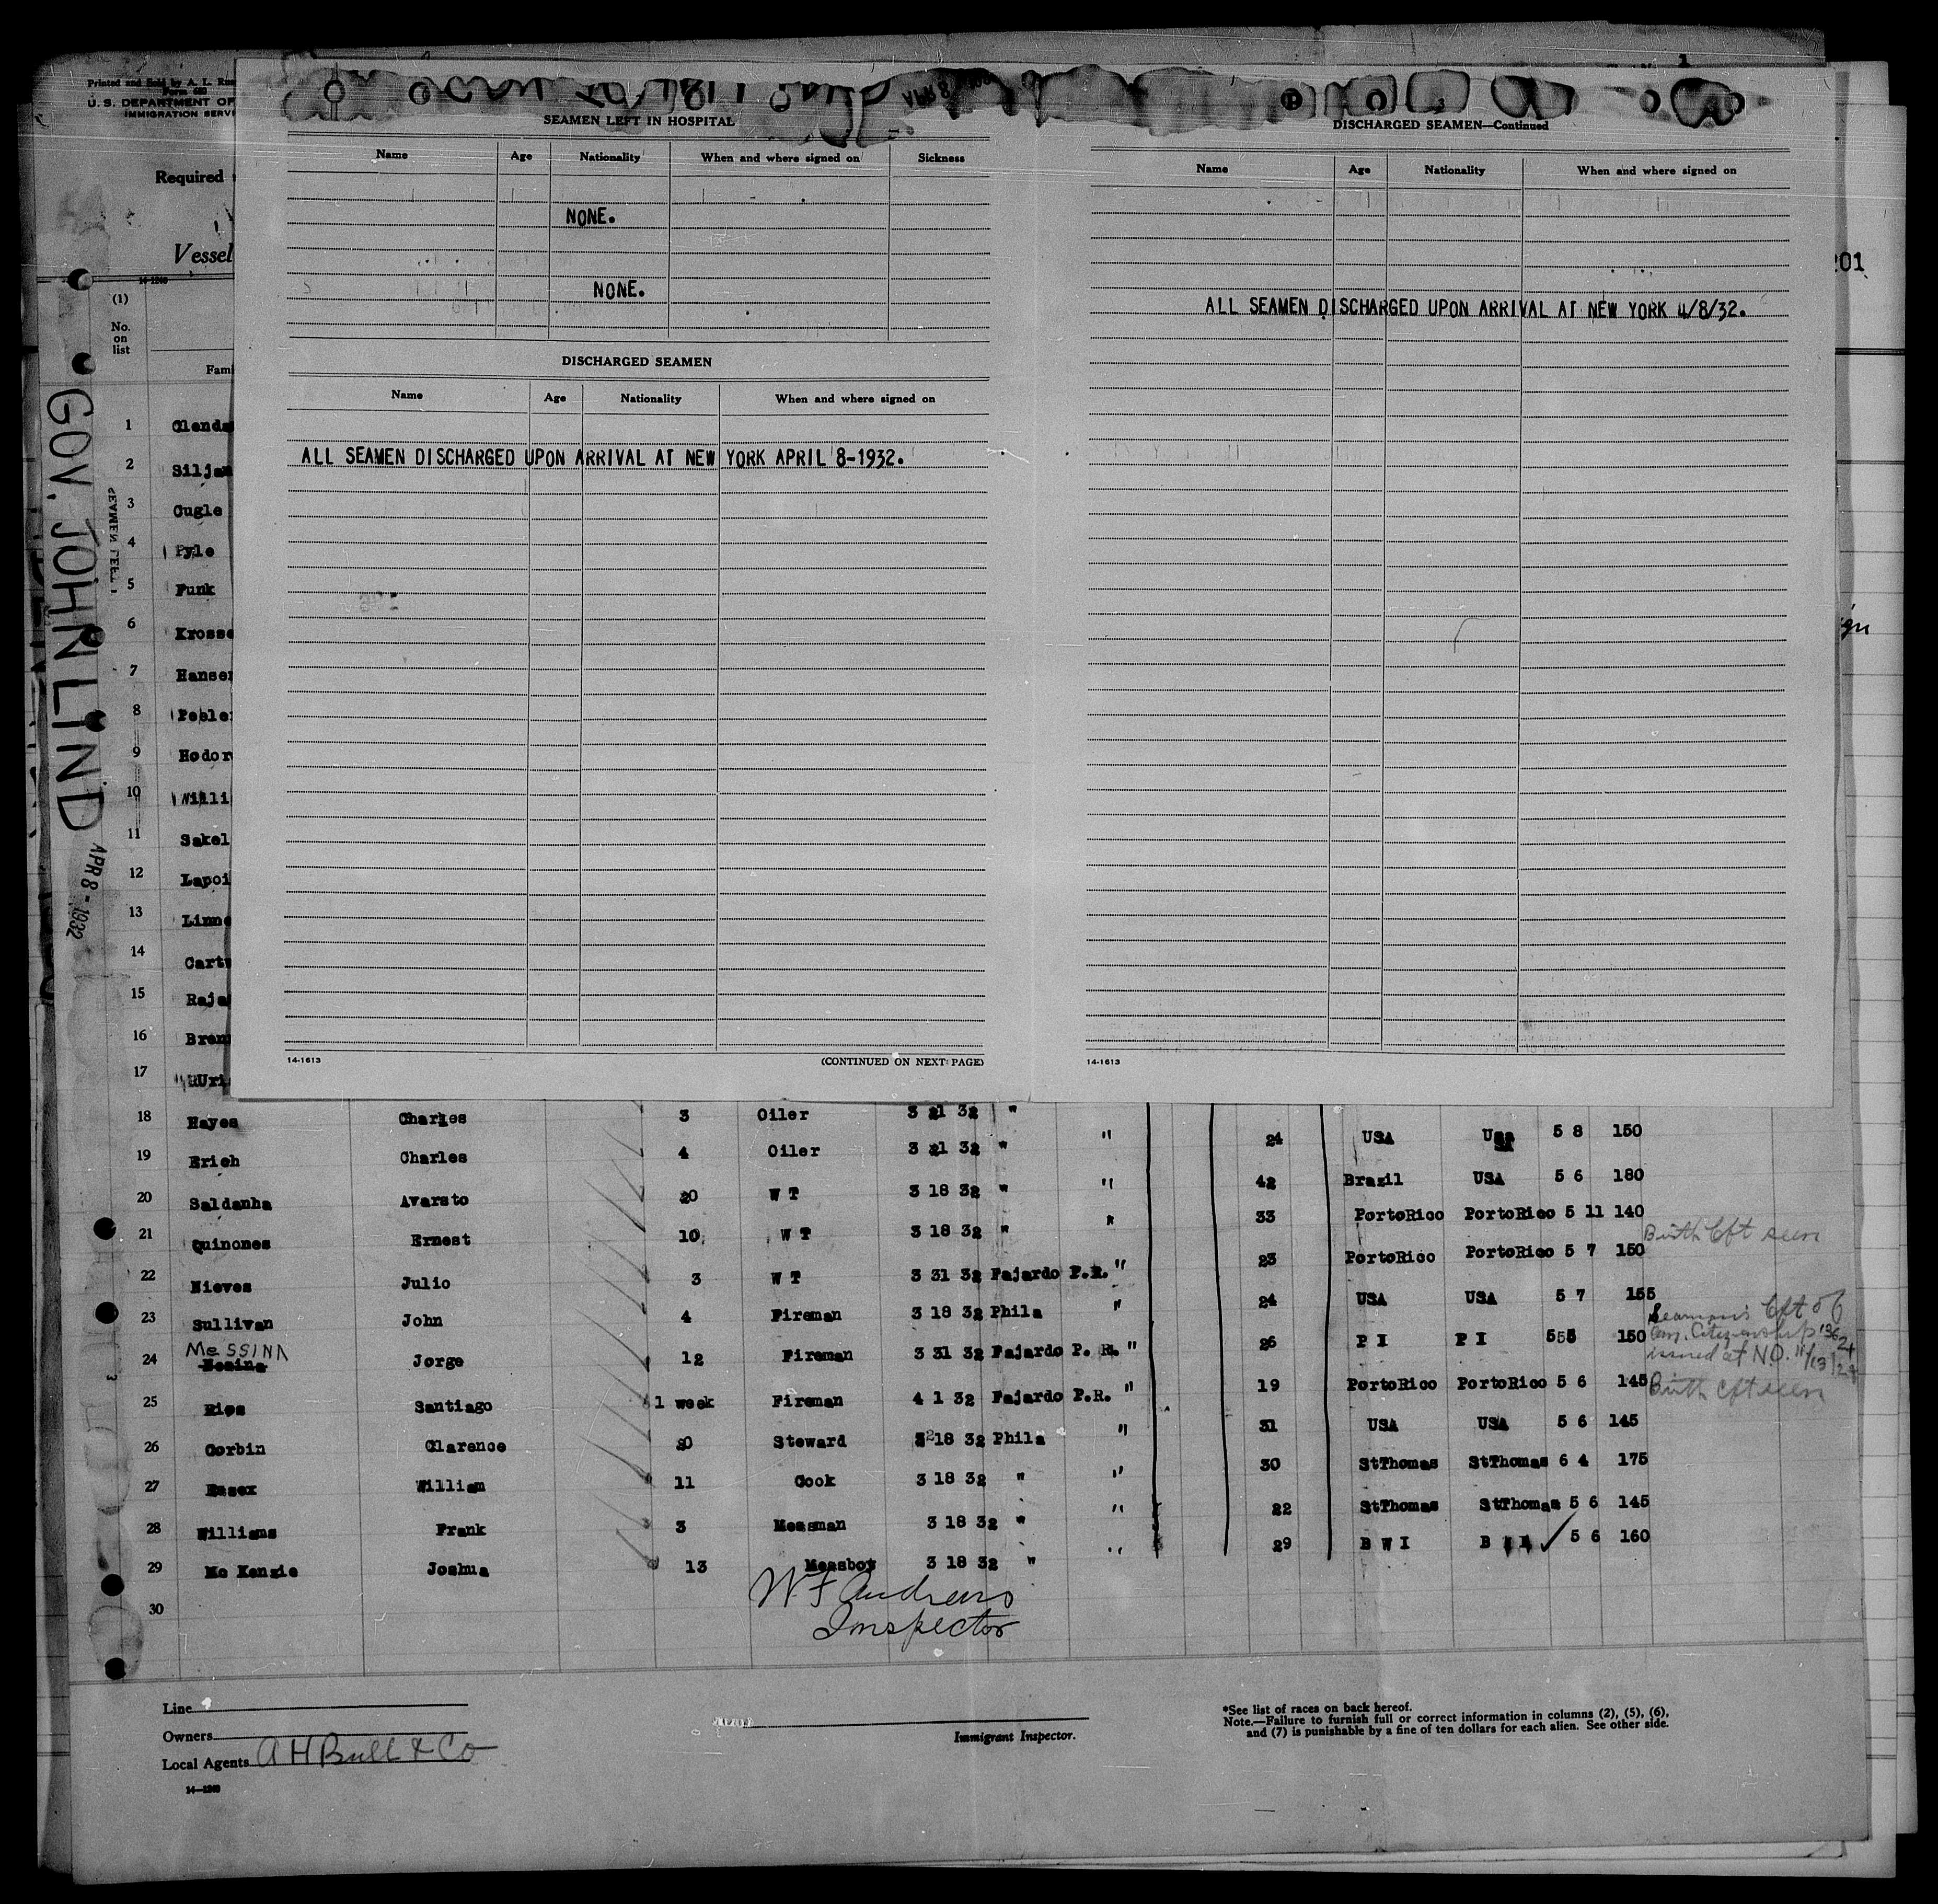 Printed and Sold by A. L. Rus
Form 680
U. S. DEPARTMENT OF
IMMIGRATION SERVI
Required
Vessel
14-1240
(1)
No.
on
list
Fami
GOV. JOHN LIND
APR 8 - 1932
SEAMEN LEFT IN HOSPITAL
Name Age Nationality When and where signed on Sickness
NONE.
NONE.
DISCHARGED SEAMEN
Name Age Nationality When and where signed on
ALL SEAMEN DISCHARGED UPON ARRIVAL AT NEW YORK APRIL 8-1932.
14-1613 (CONTINUED ON NEXT PAGE)
DISCHARGED SEAMEN—Continued
Name Age Nationality When and where signed on
ALL SEAMEN DISCHARGED UPON ARRIVAL AT NEW YORK 4/8/32.
14-1613
201
1 Glend
2 Silja
3 Gugle
4 Pyle
5 Funk
6 Krosse
7 Hansen
8 Peeler
9 Hodor
10 Willi
11 Sakel
12 Lapoi
13 Linne
14 Cartw
15 Raja
16 Bren
17 Uri
18 Hayes Charles 3 Oiler 3 21 32 " " 24 USA USA 5 8 150
19 Erich Charles 4 Oiler 3 21 32 " " 42 Brazil USA 5 6 180
20 Saldanha Avarsto 20 W T 3 18 32 " " 33 PortoRico PortoRico 5 11 140
21 Quinones Ernest 10 W T 3 18 32 " " 23 PortoRico PortoRico 5 7 150 Birth Cft seen
22 Nieves Julio 3 W T 3 31 32 Fajardo P.R. " 24 USA USA 5 7 155
23 Sullivan John 4 Fireman 3 18 32 Phila " 26 P I P I 5 5 150 Seaman's Cft of Am. Citizenship issued at N.O. 11/13/24
24 Messina Jorge 12 Fireman 3 31 32 Fajardo P. R. " 19 PortoRico PortoRico 5 6 145 Birth cft seen
25 Rios Santiago 1 week Fireman 4 1 32 Fajardo P.R. " 31 USA USA 5 6 145
26 Corbin Clarence 20 Steward 3 18 32 Phila " 30 StThomas StThomas 6 4 175
27 Essex William 11 Cook 3 18 32 " " 22 StThomas StThomas 5 6 145
28 Williams Frank 3 Messman 3 18 32 " " 29 B W I B W I 5 6 160
29 Mc Kenzie Joshua 13 Messboy 3 18 32 "
30
W F Andrews
Inspector
Line
Owners
Local Agents A H Bull & Co
14-1240
Immigrant Inspector.
*See list of races on back hereof.
Note.—Failure to furnish full or correct information in columns (2), (5), (6),
and (7) is punishable by a fine of ten dollars for each alien. See other side.